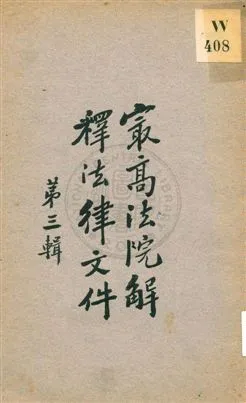 W
408
最高法院解
釋法律文件
第三輯